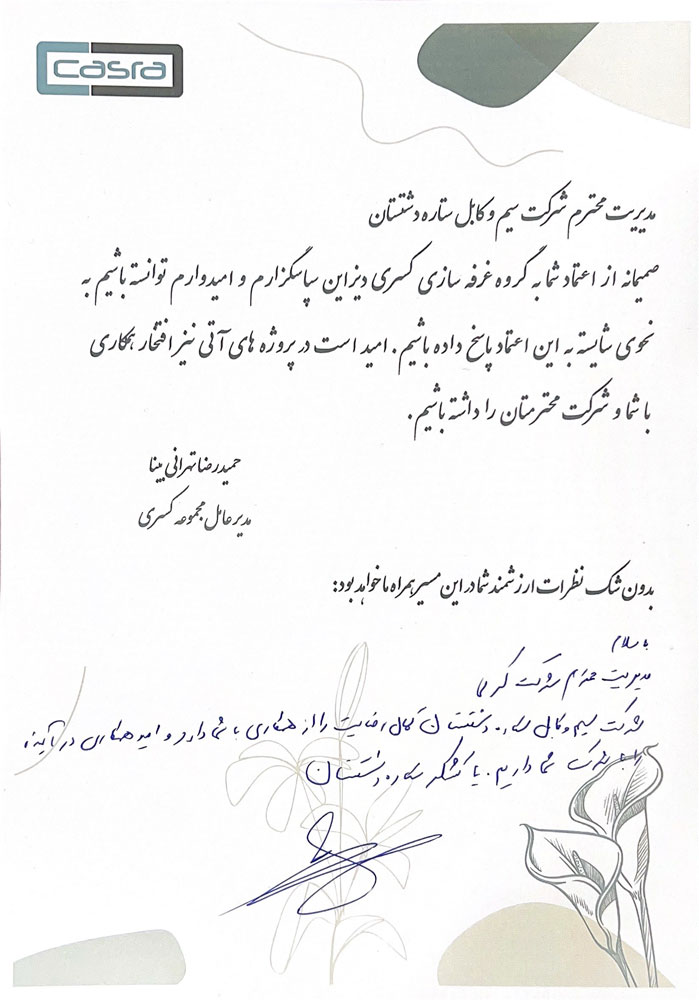 casra
مدیریت محترم شرکت سیم و کابل ستاره دشتستان
صمیمانه از اعتماد شما به گروه غرفه سازی کسری دیزاین سپاسگزارم و امیدوارم توانسته باشیم به
نحوی شایسته به این اعتماد پاسخ داده باشیم. امید است در پروژه های آتی نیز افتخار همکاری
با شما و شرکت محترمتان را داشته باشیم.
حمیدرضا تهرانی بینا
مدیرعامل مجموعه کسری
بدون شک نظرات ارزشمند شما در این مسیر همراه ما خواهد بود:
با سلام
مدیریت محترم شرکت کسری
شرکت سیم و کابل ستاره دشتستان کمال رضایت را از همکاری با شما دارد و امید همکاری در آینده
را با شرکت شما داریم. با تشکر ستاره دشتستان